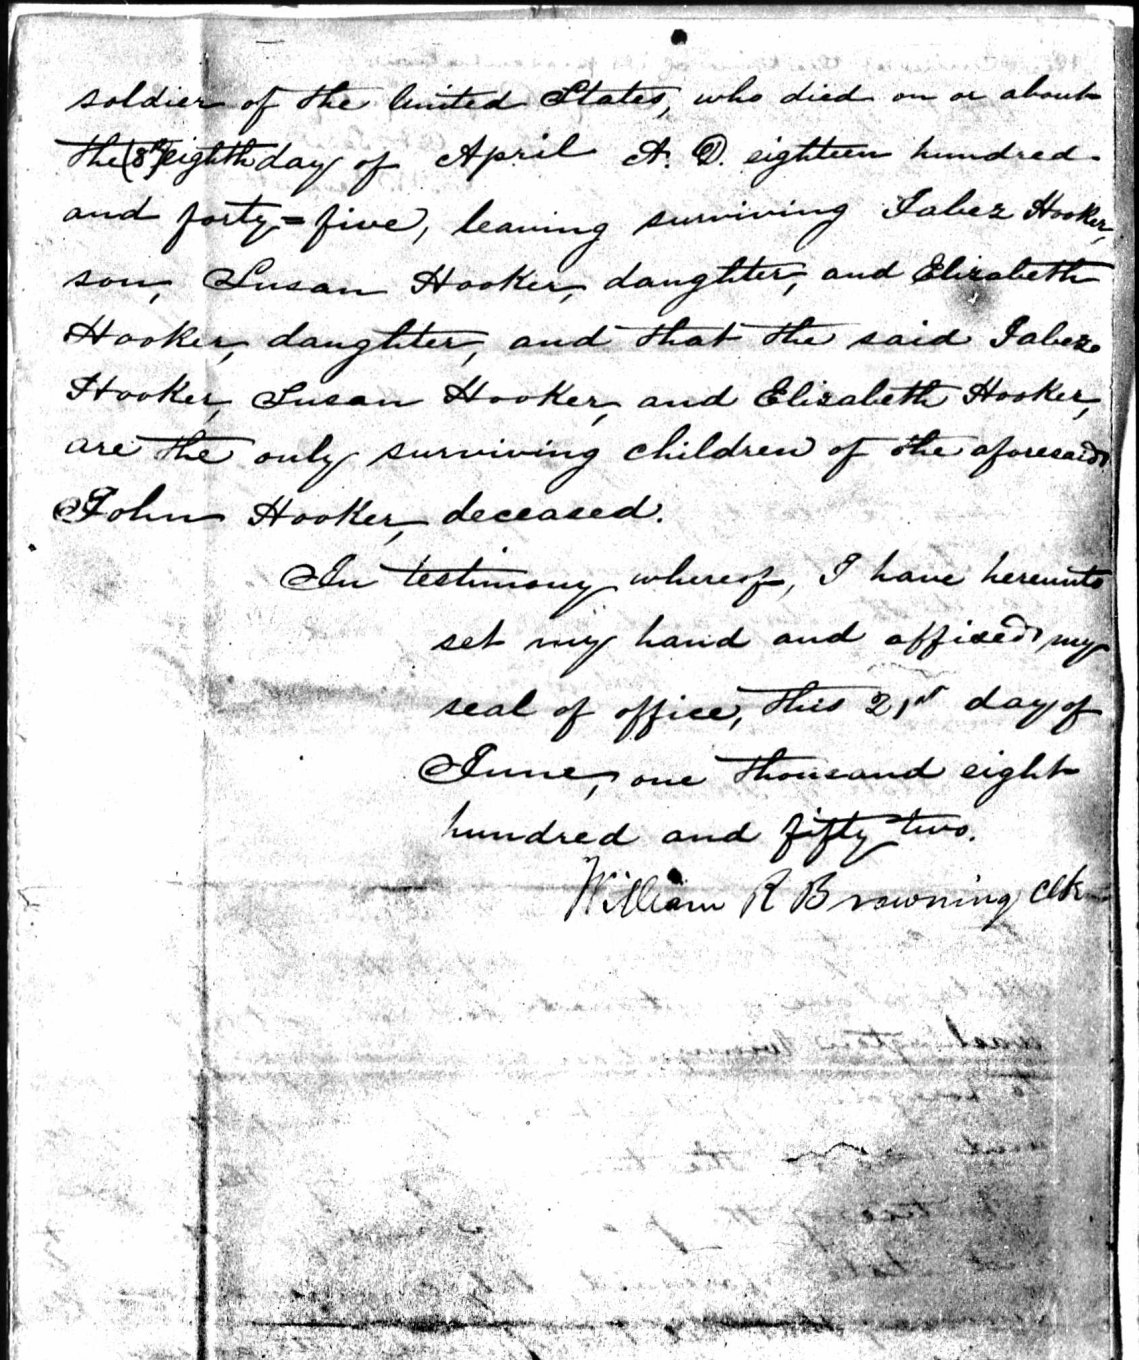 soldier of the United States, who died on or about
the (8th) eighth day of April A. D. eighteen hundred
and forty=five, leaving surviving Jabez Hooker,
son, Susan Hooker, daughter, and Elizabeth
Hooker, daughter, and that the said Jabez
Hooker, Susan Hooker, and Elizabeth Hooker,
are the only surviving children of the aforesaid
John Hooker, deceased.
In testimony whereof, I have hereunto
set my hand and affixed my
seal of office, this 21st day of
June, one thousand eight
hundred and fifty two.
William R Browning Clk